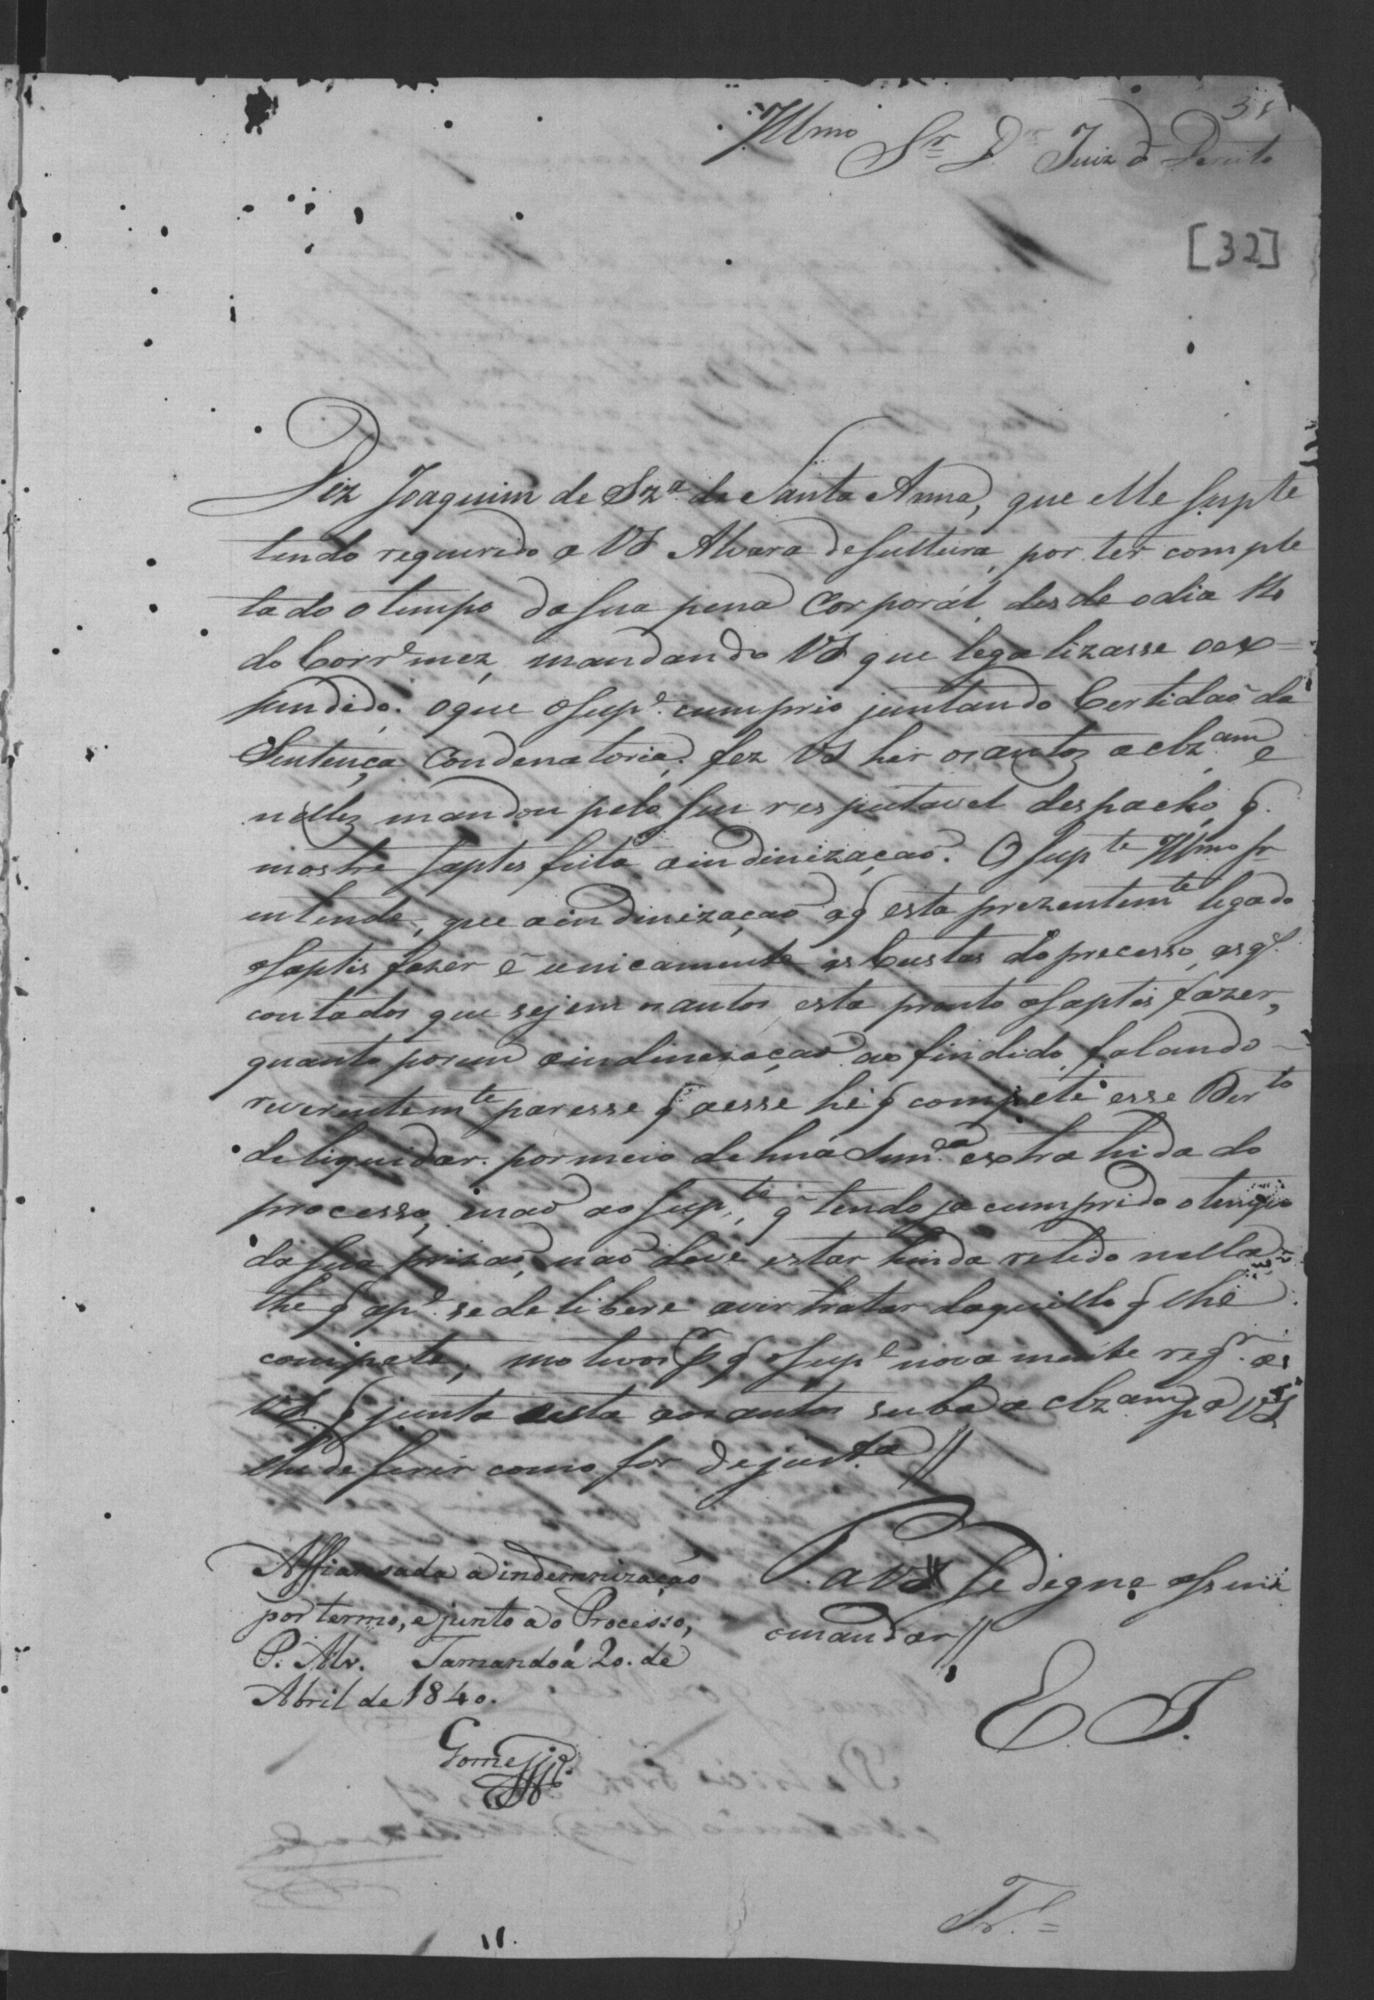 31
Illmo Sr. Dr. Juiz de Dereito
[32]
Diz Joaquim de Sza. de Santa Anna, que elle Supte
tendo requerido a VS Alvara de sultura, por ter comple
tado o tempo da sua pena Corporal, desde o dia 14
do Corre. mez, mandando VS que legalizasse o ex=
pendido: o que o Supe. cumprio juntando Certidão da
Sentença Condenatoria, fez VS hir os autos a clzam, e
nellez mandou pelo seu respeitavel despacho, q.
mostre saptisfeita a indinização. O Supte Illmo Sr
intende, que a indinização a q está prezentemte legado
o saptisfazer é unicamente as Custas do processo, as qs.
contados que sejem os autos, está pronto o saptisfazer,
quanto porem a indinização ao findido, falando
reverentemte paresse q a esse hé q compete esse Derto
de liquidar por meio de huã Senca. extrahida do
processo, i não ao Supte, q tendo ja cumprido o tempo
da sua prizão, não deve estar hinda retido nella
the q ape. se delibere a vir tratar daquillo q lhe
compete, motivos pr q o Supe. novamente reqr. a
VS q junta esta aos autos suba a clzam pa VS
lhe deferir como for de justa //
P. a VS Se digne assim
o mandar //
E. J.
Affiansada a indemnização
por termo, e junto ao Processo,
P. Alv. Tamandoá 20. de
Abril de 1840.
Gomes